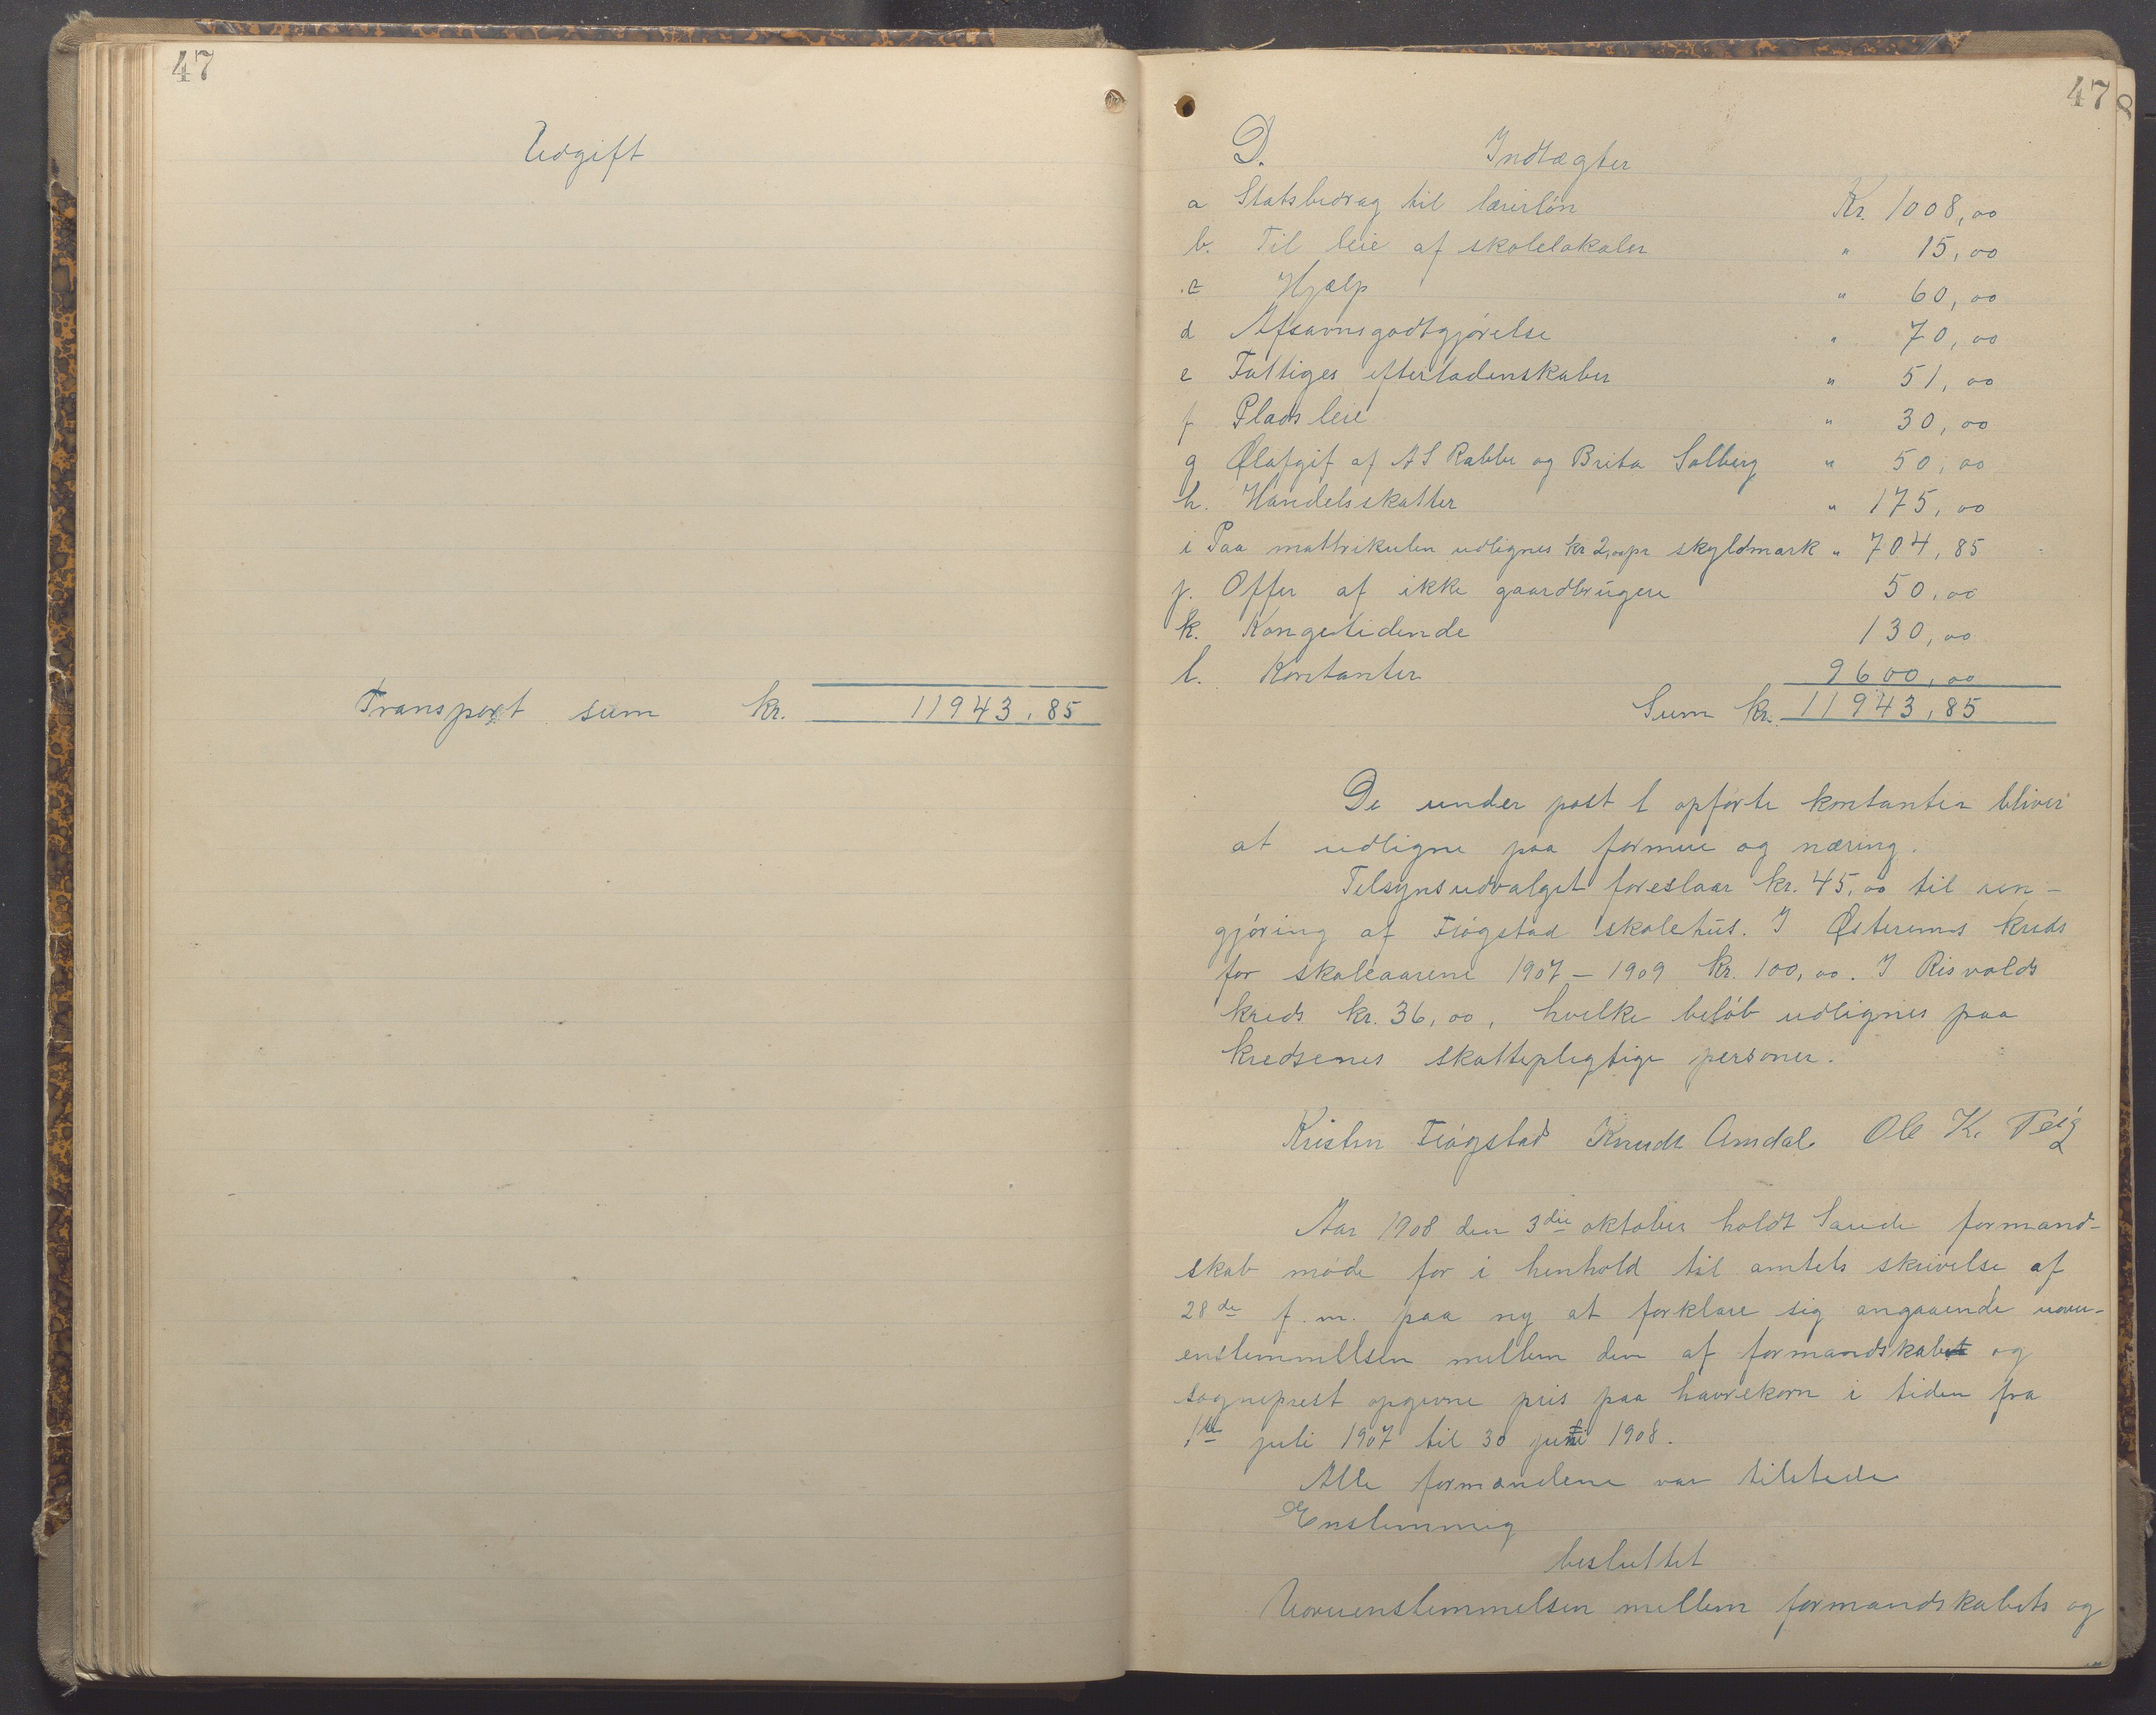 47
Udgift
Transport sum kr. 11943,85
47
8
D. Indtægter
a Statsbidrag til lærerløn Kr. 1008,00
b. Til leie af skolelokaler " 15,00
c Hjælp " 60,00
d Afsavnsgodtgjørelse " 70,00
e Fattiges efterladenskaber " 51,00
f Pladsleie " 30,00
g Ølafgif af AS Rabbe og Brita Solberg " 50,00
h. Handelsskatter " 175,00
i Paa mattrikulen udlignes kr 2,00 pr skyldmark " 704,85
j. Offer af ikke gaardbrugere 50,00
k. Kongetidende 130,00
l. Kontanter 9600,00
Sum kr. 11943,85
De under post l opførte kontanter bliver
at udligne paa formue og næring.
Tilsynsudvalget foreslaar kr. 45,00 til ren-
gjøring af Fiøgstad skolehus. I Østerems kreds
for skoleaarene 1907 – 1909 kr. 100,00. I Risvolds
kreds kr. 36,00, hvilke beløb udlignes paa
kredsenes skattepligtige personer.
Kristen Fiøgstad Knudt Amdal Ole K. Teig
Aar 1908 den 3die oktober holdt Saude formand-
skab møde for i henhold til amtets skrivelse af
28de f.m. paa ny at forklare sig angaaende uover-
enstemmelsen mellem den af formandskabet og
sogneprest opgivne pris paa havrekorn i tiden fra
1ste juli 1907 til 30 juni 1908.
Alle formændene var tilstede
Enstemmig
besluttet
Uoverenstemmelsen mellem formandskabets og